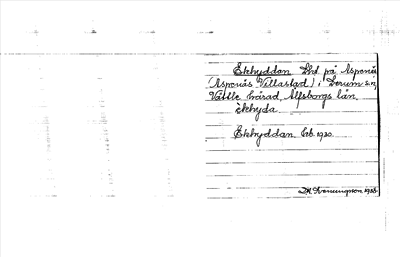 Ekhyddan Lht. på Aspenäs
(Aspenäs Villastad) i Lerum s:n,
Vättle härad, Älfsborgs län.
ekhyda.
Ekhyddan Geb. 1930.
1935